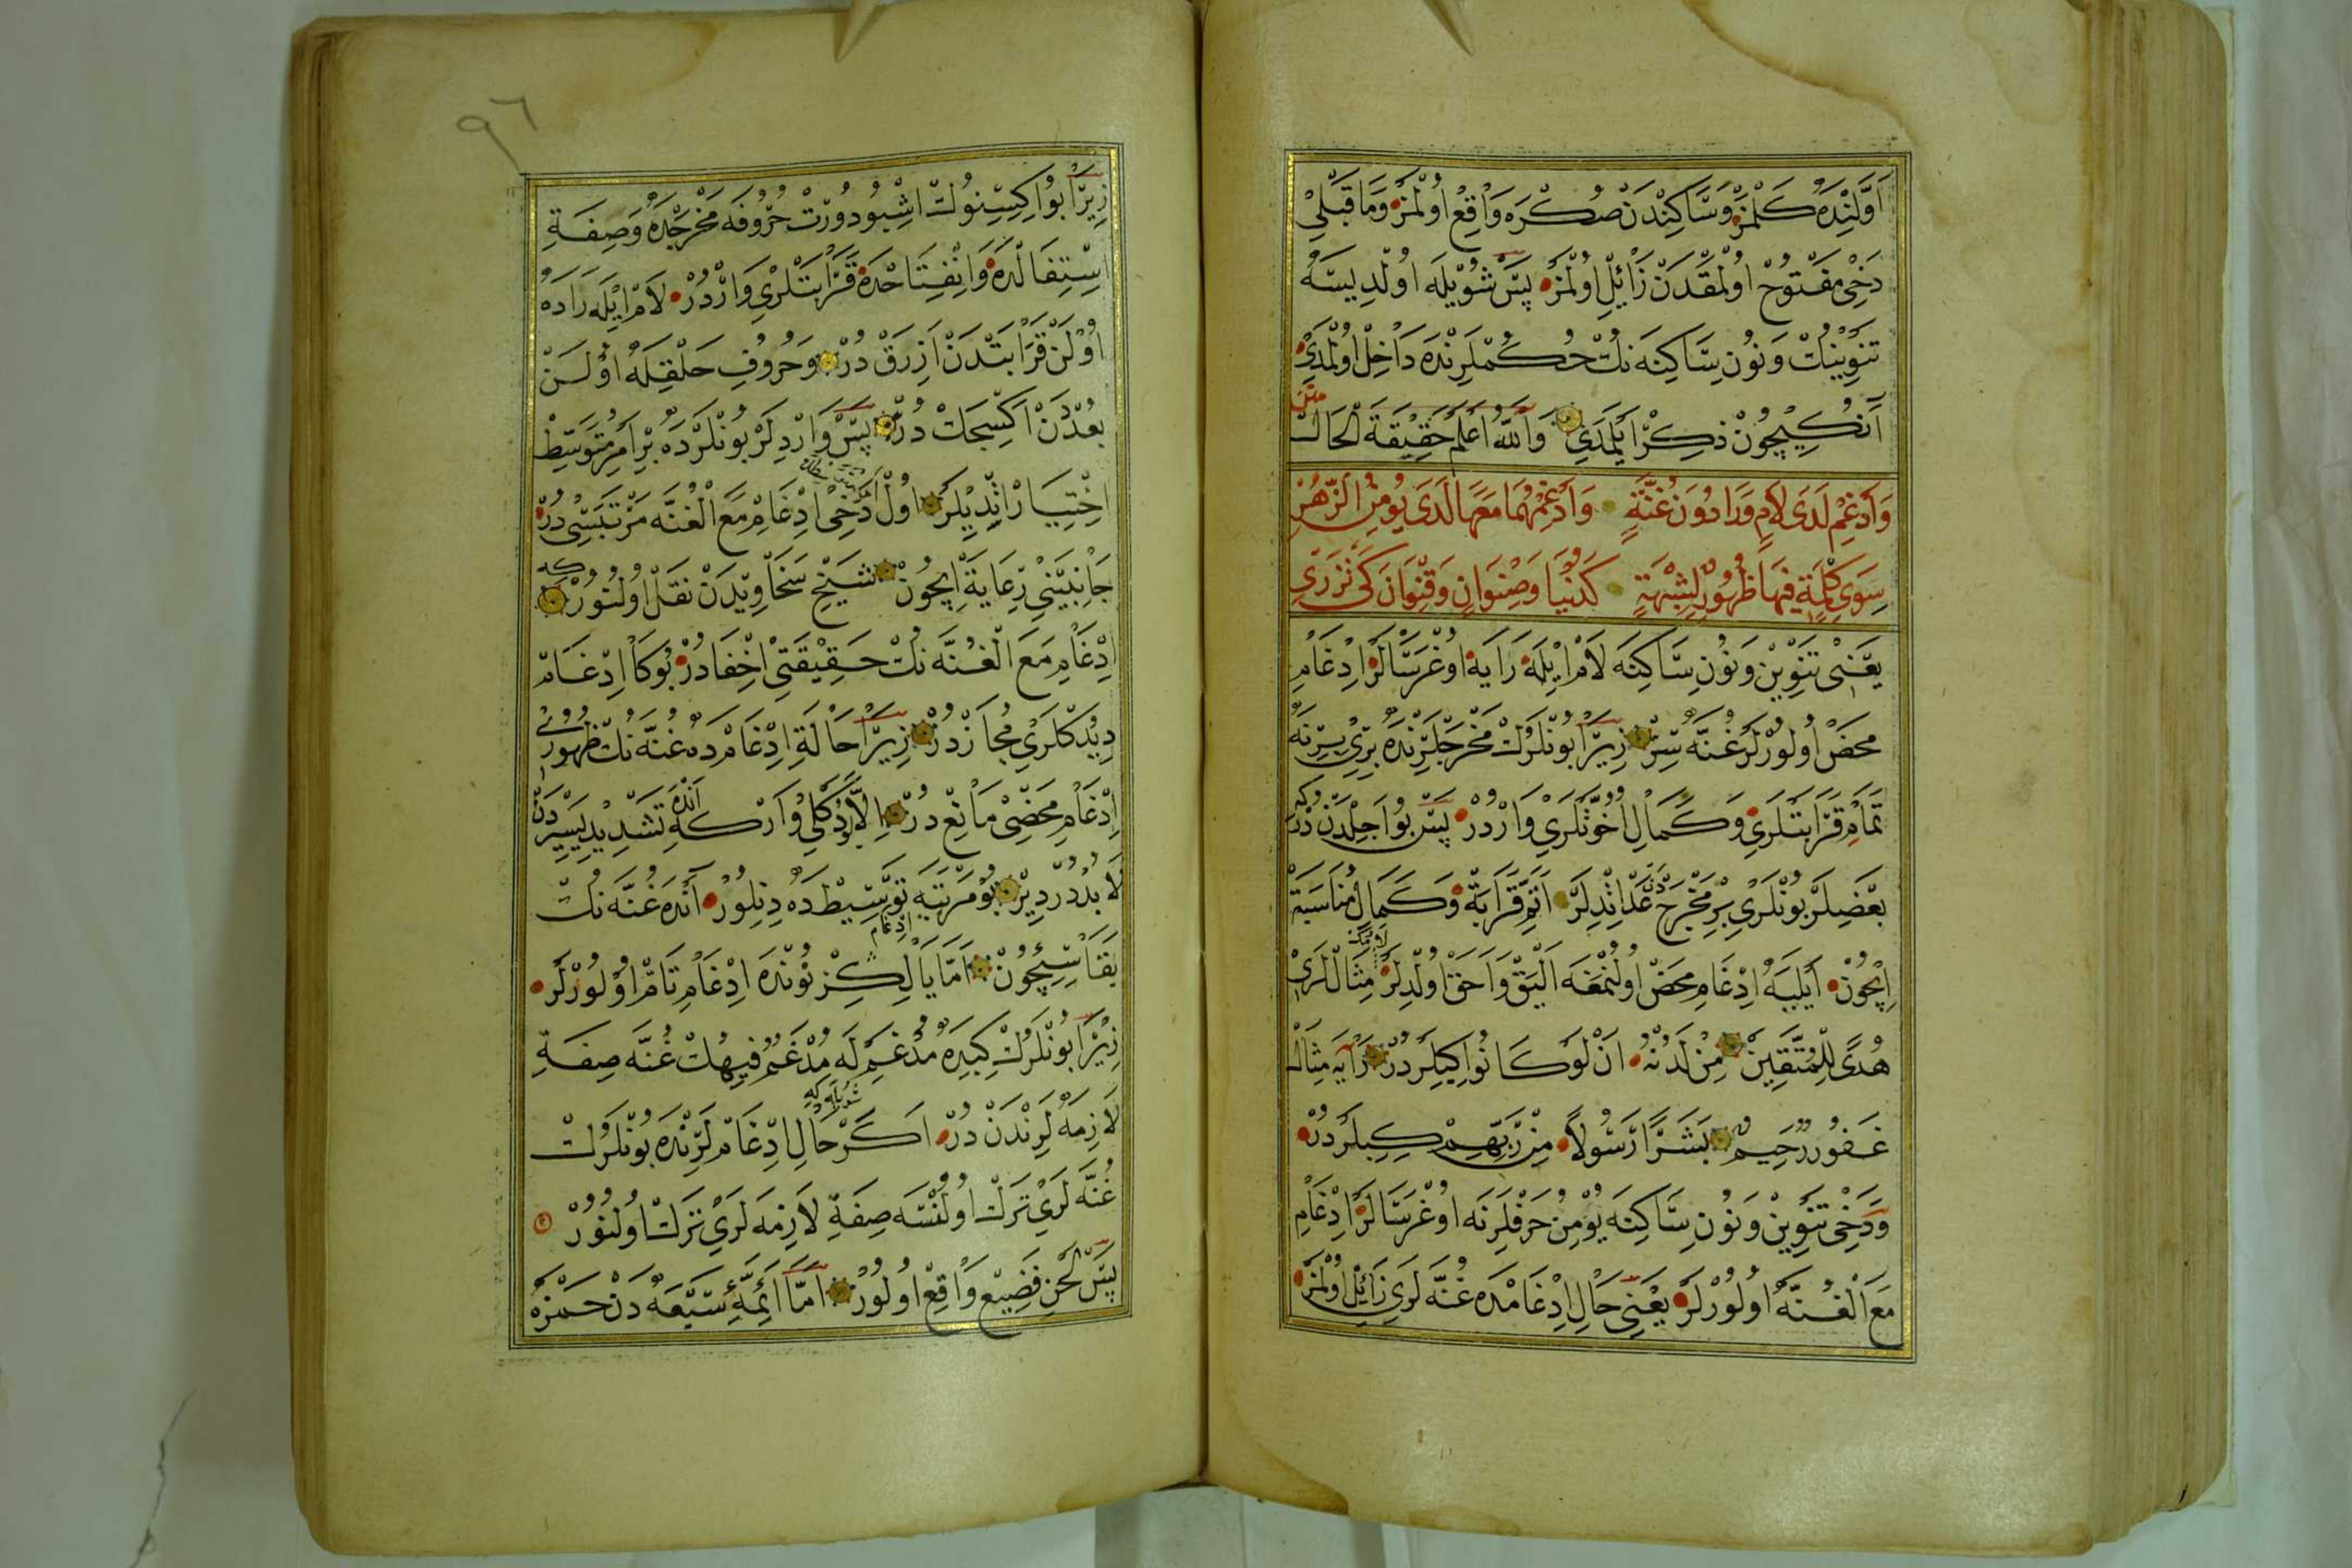 اَوَّلِنْدَه كَلْمَزْ وَسَّاكِنْدَنْ صُكْرَه وَاقِعْ اُولْمَزْ وَمَا قَبْلِى
دَخِى مَفْتُوحْ اُولْمَقْدَنْ زَائِلْ اُولْمَزْ پَسْ شُويْلَه اُولْدِيسَه
تَنْوِينِكْ وَنُونِ سَّاكِنَه نِكْ حُكُمْلَرِنْدَه دَاخِلْ اُولْمَدِى
اَنُكِيچُونْ ذِكِرْ اَيْلَمَدِى وَاللّٰهُ اَعْلَمُ حَقِيقَةَ الْحَالْ
متن
وَاَدْغِمْ لَدَى لَامٍ وَرَا دُونَ غُنَّةٍ وَاَدْغِمْهُمَا مَعَهَا لَدَى يُومِنُ الزُّهْنِ
سِوَى كِلْمَةٍ فِيهَا ظُهُورٌ لِشِبْهَةٍ كَدُنْيَا وَصِنْوَانٍ وَقِنْوَانٍ كَىْ تَزْرِى
يَعْنِى تَنْوِينْ وَنُونِ سَّاكِنَه لَامْ اِيلَه رَايَه اُوغْرَسَالَرْ اِدْغَامِ
مَحْضْ اُولُورْلَرْ غُنَّه سِزْ زِيرَا بُونْلَرُكْ مَخْرَجْلَرِنْدَه بِرِى بِرِنَه
تَمَامِ قَرَابَتْلَرِى وَكَمَالِ اُخُوَّتْلَرِى وَارْدُرْ پَسْ بُو اَجِلْدَنْدُرْ كِه
بَعْضِيلَرْ بُونْلَرِى بِرْ مَخْرَجْدَنْ عَدْ اِتْدِيلَرْ اَتَمِّ قَرَابَةْ وَكَمَالِ مُنَاسَبَةْ
اِيچُونْ اَيْلَيَه اِدْغَامِ مَحْضْ اُولُنْمَغَه اَلْيَقْ وَاَحَقْ اُولْدِلَرْ لَامُكْ مِثَالْلَرِى
هُدًى لِلْمُتَّقِينْ مِنْ لَدُنْهُ اَنْ لَوْ كَانُوا كِبِيلَرْدُرْ رَايَه مِثَالْ
غَفُورٌ رَحِيمٌ بَشَرًا رَسُولًا مِنْ رَبِّهِمْ كِبِيلَرْدُرْ
وَدَخِى تَنْوِينْ وَنُونِ سَّاكِنَه يُومِنْ حَرْفْلَرِنَه اُوغْرَسَالَرْ اِدْغَامِ
مَعَ الْغُنَّه اُولُورْلَرْ يَعْنِى حَالِ اِدْغَامْدَه غُنَّه لَرِى زَائِلْ اُولْمَزْ
٩٦
زِيرَا بُو اِكِسِنُوكْ اِشْبُو دُورْتْ حُرُوفَه مَخْرَجْدَه وَصِفَةِ
اِسْتِفَالْدَه وَاِنْفِتَاحْدَه قَرَابَتْلَرِى وَارْدُرْ لَامْ اِيلَه رَادَه
اُولَنْ قَرَابَتْدَنْ اَزِرَقْ دُرْ وَحُرُوفِ حَلْقِلَه اُولَنْ
بُعْدَنْ اَكْسِجَكْ دُرْ پَسْ وَارْدِلَرْ بُونْلَرْدَه بِرْ اَمْرِ مُتَوَسِّطْ
اِخْتِيَارْ اِتْدِيلَرْ اُولْ دَخِى اِدْغَامِ مَعَ الْغُنَّه مَرْتَبَسِى دُرْ
جَانِبَيْنِى رِعَايَةْ اِيچُونْ شَيْخِ سَخَاوِيدَنْ نَقَلْ اُولُنُورْ كه
اِدْغَامِ مَعَ الْغُنَّه نِكْ حَقِيقَتِى اِخْفَادُرْ بُوكَا اِدْغَامْ
دِيدُكْلَرِى مُجَازْدُرْ زِيرَا حَالَةِ اِدْغَامْدَه غُنَّه نِكْ ظُهُورِى
اِدْغَامِ مَحْضِى مَانِعْ دُرْ اِلَّا بُو وَارْ كِه اَنْدَه تَشْدِيدِيسِرْدَنْ
لَا بُدْدُرْ دِيرْ بُو مَرْتَبَيَه تَوَسِّيطْ دَه دِنِلُورْ اَنْدَه غُنَّه نُكْ
بَقَاسِيچُونْ اَمَّا يَالِكِزْ نُونْدَه اِدْغَامِ تَامْ اُولُورْلَرْ
زِيرَا بُونْلَرُكْ كِبِيدَه مُدْغَمْ لَه مُدْغَمٌ فِيهِكْ غُنَّه صِفَةِ
لَازِمَه لَرِنْدَنْ دُرْ شويله كه اَكَرْ حَالِ اِدْغَامْلَرِنْدَه بُونْلَرُكْ
غُنَّه لَرِى تَرْكْ اُولُنْسَه صِفَةِ لَازِمَه لَرِى تَرْكْ اُولُنُورْ
پَسْ لَحْنِ فَضِيعْ وَاقِعْ اُولُورْ اَمَّا اَئِمَّهِٔ سَبْعَه دَنْ حَمْزَه